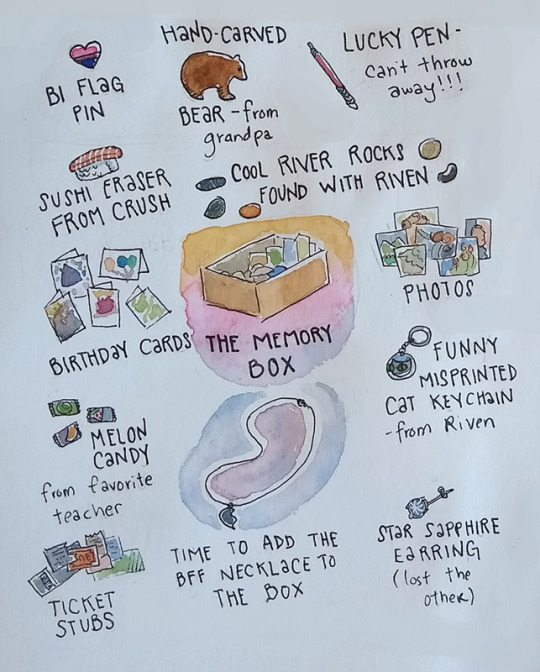 BI FLAG
PIN
HAND-CARVED
BEAR - from
grandpa
LUCKY PEN -
can't throw
away!!!
SUSHI ERASER
FROM CRUSH
COOL RIVER ROCKS
FOUND WITH RIVEN
PHOTOS
BIRTHDAY CARDS
THE MEMORY
BOX
FUNNY
MISPRINTED
CAT KEYCHAIN
- from Riven
MELON
CANDY
from favorite
teacher
TIME TO ADD THE
BFF NECKLACE TO
THE BOX
STAR SAPPHIRE
EARRING
(lost the
other)
TICKET
STUBS